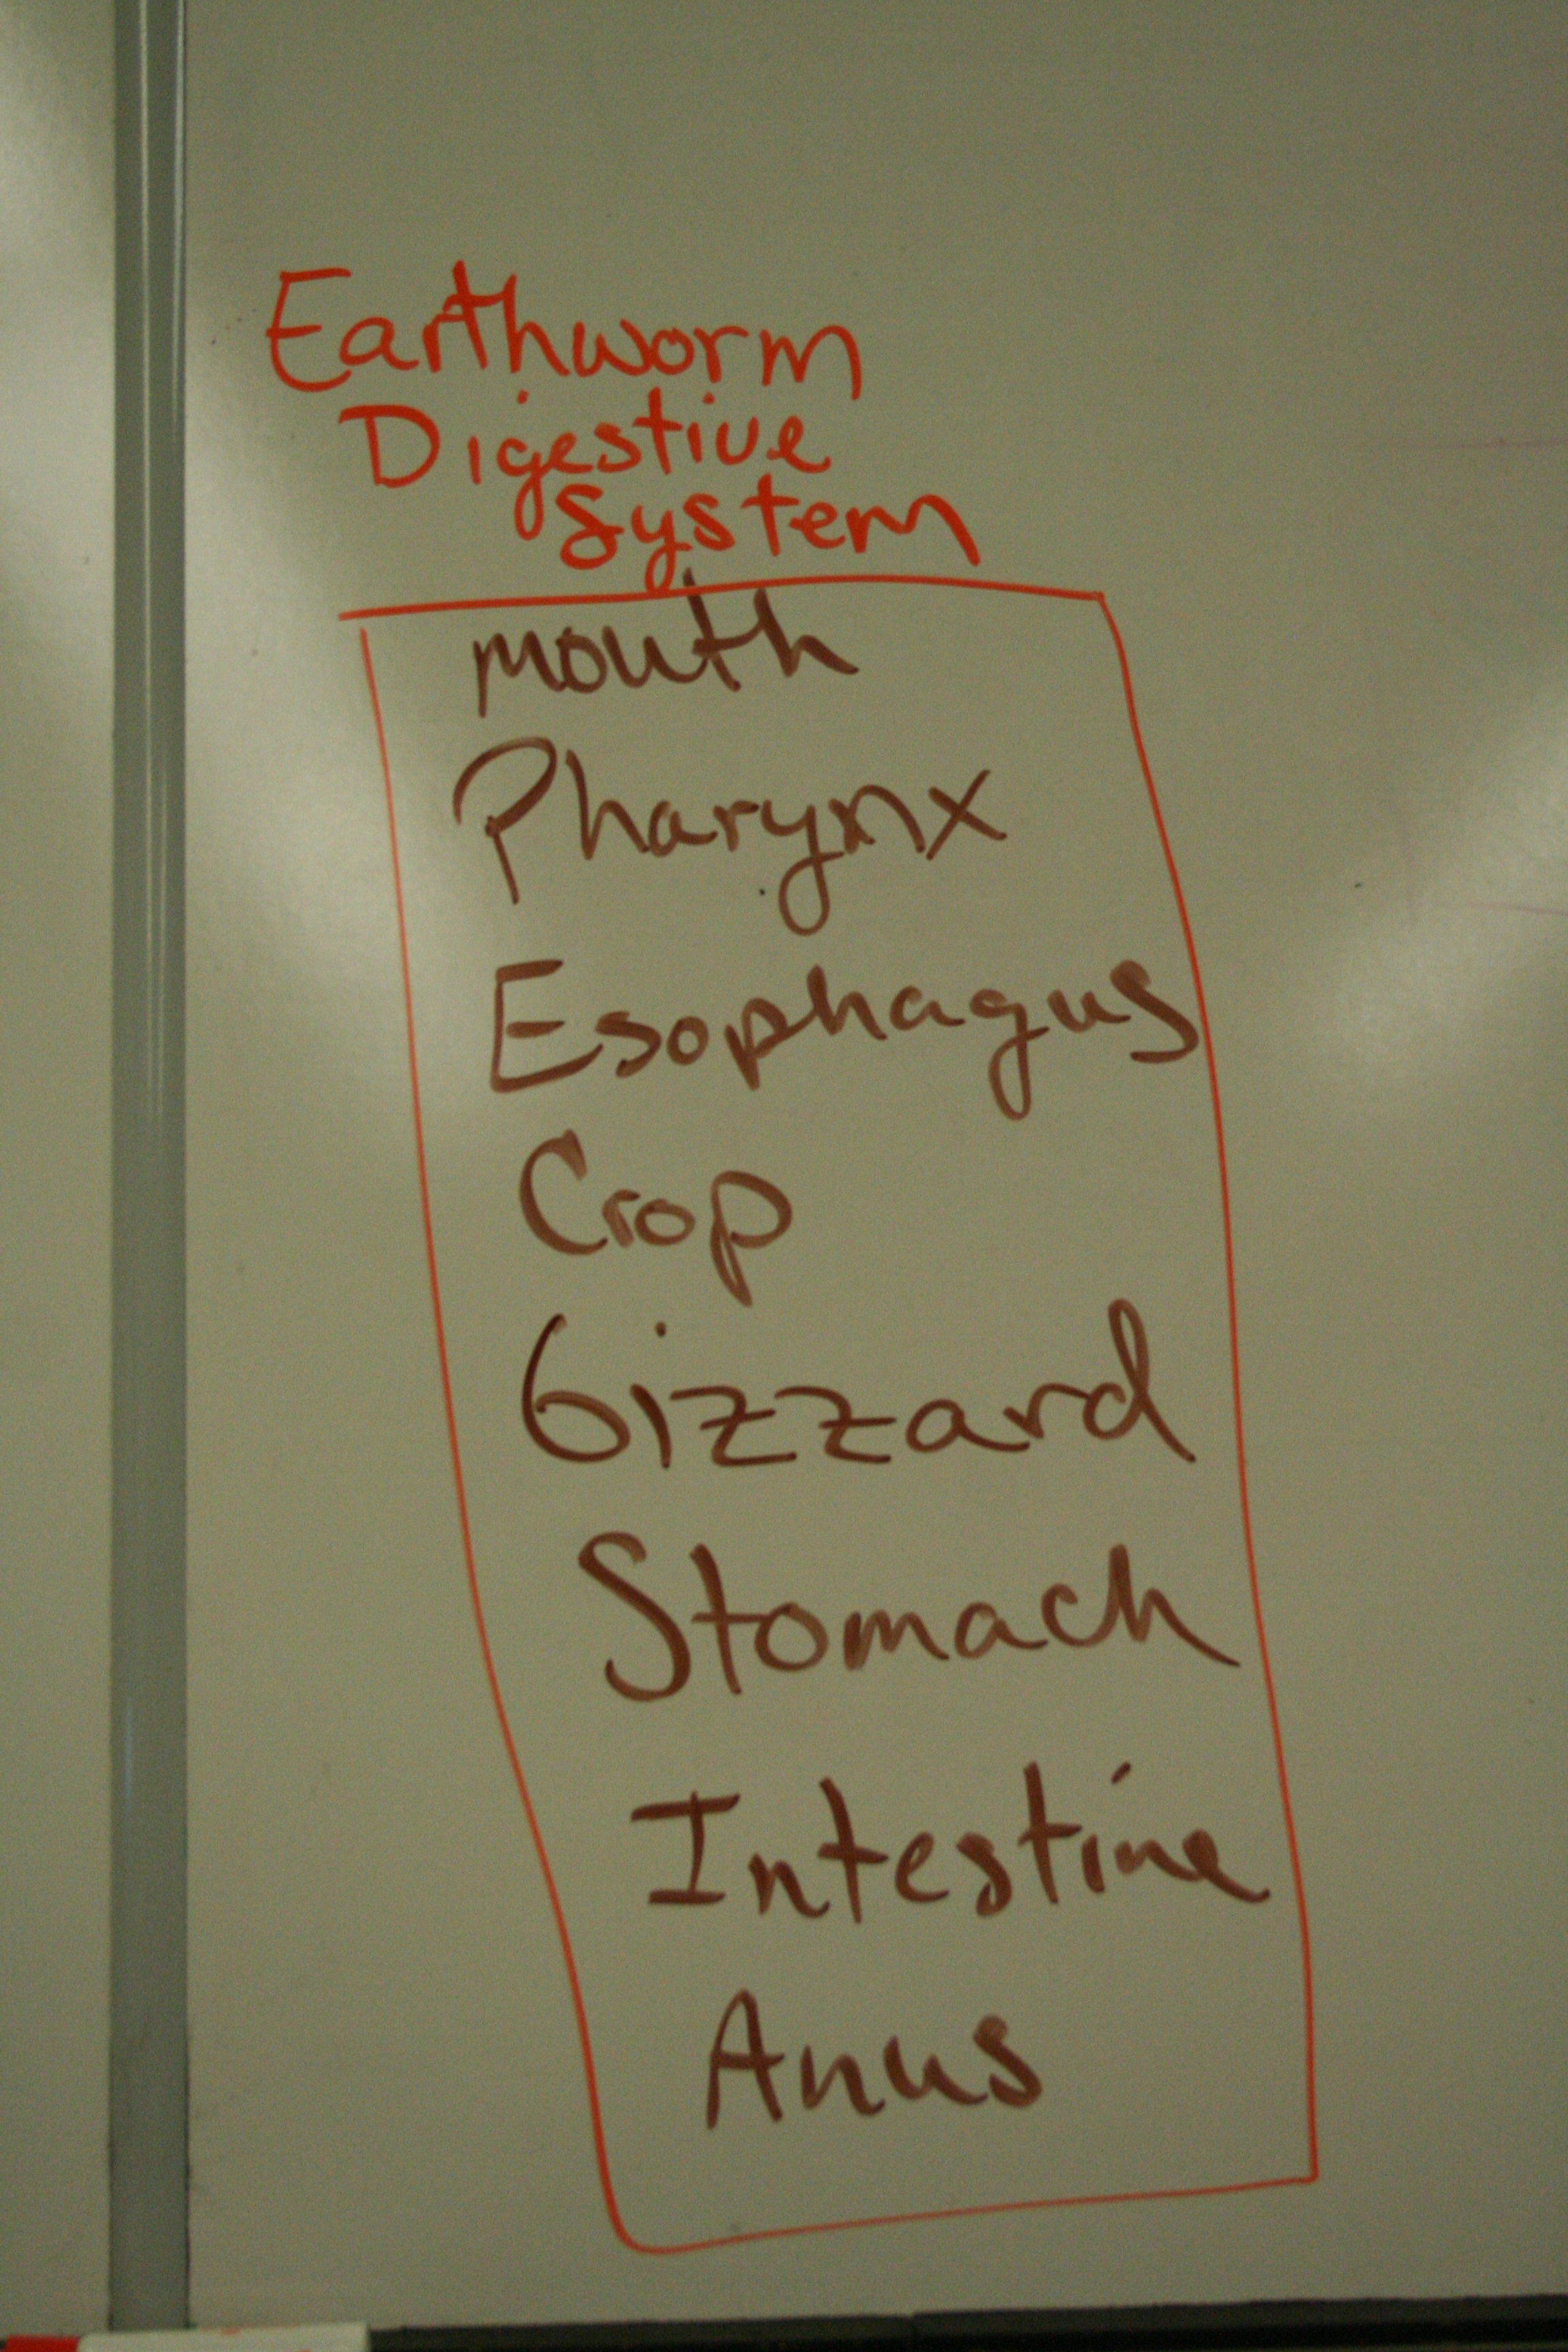 Earthworm
Digestive
System
mouth
Pharynx
Esophagus
Crop
Gizzard
Stomach
Intestine
Anus